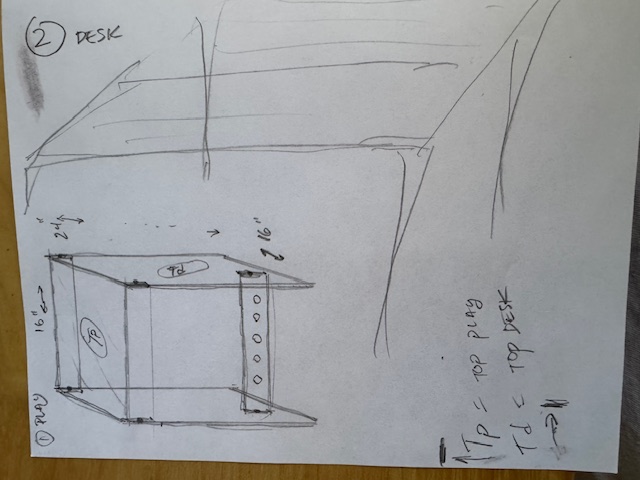 ① PLAY
16"
24"
Tp
Td
16"
② DESK
Tp = TOP PLAY
Td = TOP DESK